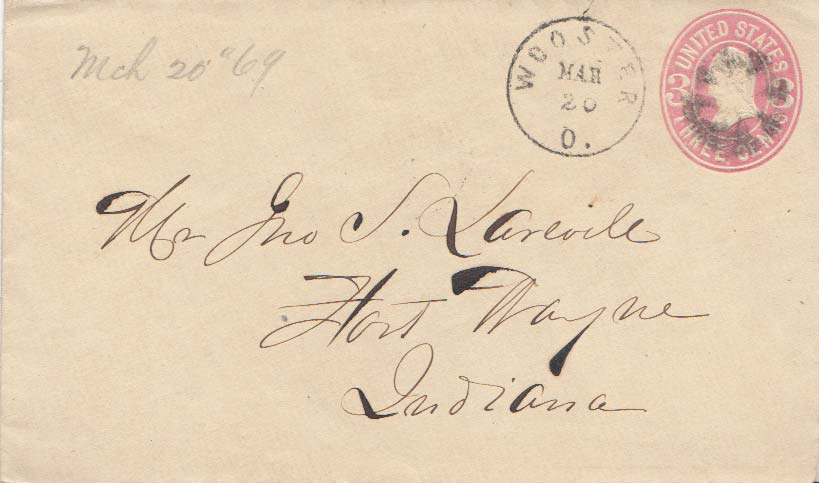 Mch 20" 69
WOOSTER
MAR
20
O.
UNITED STATES
3 3
THREE CENTS
Mr Jno S. Lareville
Fort Wayne
Indiana